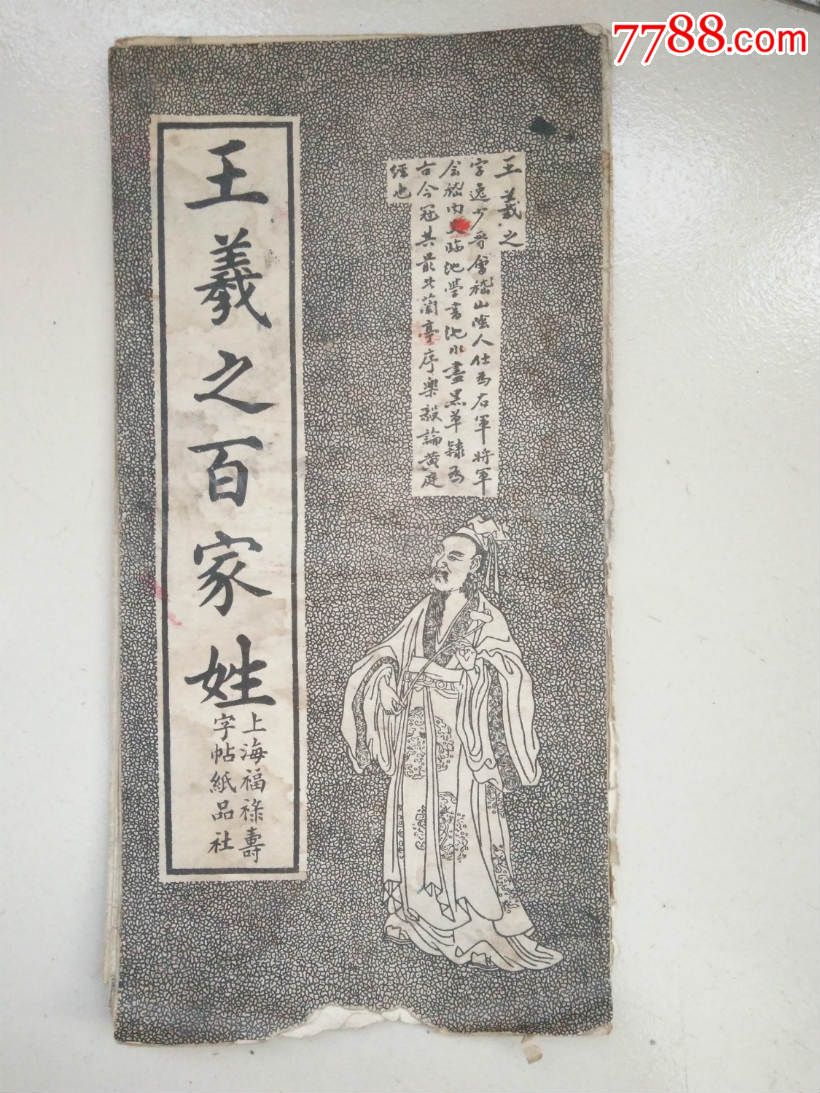 7788.com
王羲之
字逸少晉會稽山陰人仕為右軍將軍
會稽內史臨池學書池水盡黑草隸為
古今冠其最者蘭亭序樂毅論黃庭
經也
王羲之百家姓
上海福祿壽
字帖紙品社